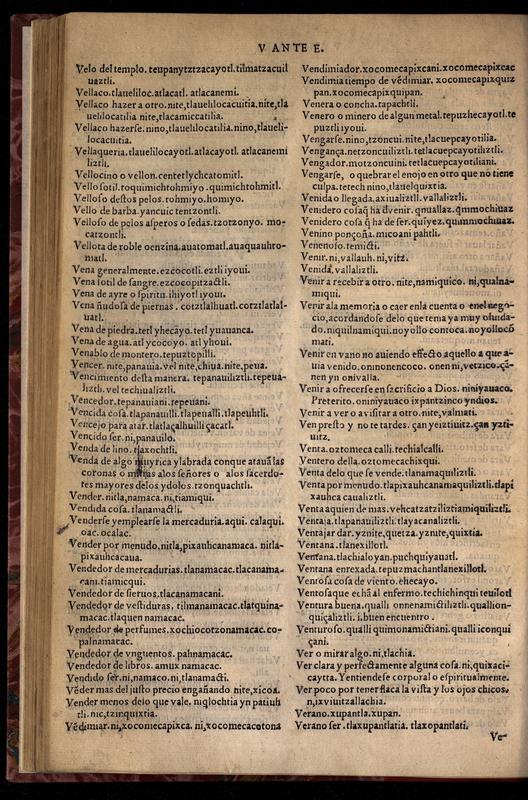 V ANTE E.
Velo del templo. teupanytztzacayotl. tilmatzacuil
uaztli.
Vellaco. tlaueliloc. atlacatl. atlacanemi.
Vellaco hazer a otro. nite, tlauelilocacuitia. nite, tla
uelilocatilia nite, tlacamiccatilia.
Vellaco hazerse. nino, tlauelilocatilia. nino, tlaueli-
locacuitia.
Vellaqueria. tlauelilocayotl. atlacayotl. atlacanemi
liztli.
Vellocino o vellon. centetlychcatomitl.
Vello sotil. toquimichtohmiyo. quimichtohmitl.
Velloso destos pelos. tohmiyo. homiyo.
Vello de barba. yancuic tentzontli.
Velloso de pelos asperos o sedas. tzotzonyo. mo-
catzontli.
Vellota de roble oenzina. auatomatl. auaquauhto-
matl.
Vena generalmente. ezcocotli. eztli iyoui.
Vena sotil de sangre. ezcocopitzactli.
Vena de ayre o spiritu. ihiyotl iyoui.
Vena ñudosa de piernas. cotztlalhuatl. cotztlatlal-
uatl.
Vena de piedra. tetl yhecayo. tetl yuauanca.
Vena de agua. atl ycocoyo. atl yhoui.
Venablo de montero. tepuztopilli.
Vencer. nite, panauia. vel nite, chiua. nite, peua.
Vencimiento desta manera. tepanauiliztli. tepeua-
liztli. vel techiualiztli.
Vencedor. tepanauiani. tepeuani.
Vencida cosa. tlapanauilli. tlapenalli. tlapeuhtli.
Vencejo para atar. tlatlaçalhuilli çacatl.
Vencido ser. ni, panauilo.
Venda de lino. tlaxochtli.
Venda de algo muy rica y labrada con que atauã las
coronas o mitras alos señores o alos sacerdo-
tes mayores delos ydolos. tzonquachtli.
Vender. nitla, namaca. ni, tiamiqui.
Vendida cosa. tlanamactli.
Venderse y emplearse la mercaduria. aqui. calaqui.
oac. ocalac.
Vender por menudo. nitla, pixauhcanamaca. nitla-
pixauhcacaua.
Vendedor de mercadurias. tlanamacac. tlacanama-
cani. tiamicqui.
Vendedor de sieruos. tlacanamacani.
Vendedor de vestiduras, tilmanamacac. tlatquina-
macac. tlaquen namacac.
Vendedor de perfumes. xochiocotzonamacac. co-
palnamacac.
Vendedor de vnguentos. pahnamacac.
Vendedor de libros. amux namacac.
Vendido ser. ni, namaco. ni, tlanamacti.
Vẽder mas del justo precio engañando. nite, xicoa.
Vender menos delo que vale. niqlochtia yn patiuh
tli. nic, tzinquixtia.
Vẽdimiar. ni, xocomecapixca. ni, xocomecacotona
Vendimiador. xocomecapixcani. xocomecapixcac
Vendimia tiempo de vẽdimiar. xocomecapixquiz
pan. xocomecapixquipan.
Venera o concha. tapachtli.
Venero o minero de algun metal. tepuzhecayotl. te
puztli iyoui.
Vengarse. nino, tzoncui. nite, tlacuepcayotilia.
Vengança. netzoncuiliztli. tetlacuepcayotiliztli.
Vengador. motzoncuini. tetlacuepcayotiliani.
Vengarse, o quebrar el enojo en otro que no tiene
culpa. tetech nino, tlauelquixtia.
Venida o llegada. axiualiztli. vallaliztli.
Venidero cosa q̃ ha dvenir. qnuallaz. q̃mmochiuaz
Venidero cosa q̃ ha de ser. quiyez. quimmochiuaz.
Venino ponçoña. micoani pahtli.
Venenoso. temicti.
Venir. ni, vallauh. ni, vitz.
Venida. vallaliztli.
Venir a recebir a otro. nite, namiquico. ni, qualna-
miqui.
Venir ala memoria o caer enla cuenta o enel nego-
cio, acordandose delo que tema ya muy oluida-
do. niquilnamiqui. noyollo contoca. noyollocõ
mati.
Venir en vano no auiendo effecto aquello a que a-
uia venido. oninonencoco. onen ni, vetzico. çã-
nen yn onivalla.
Venir a ofrecerse en sacrificio a Dios. niniyauaco.
Preterito. oniniyauaco ixpantzinco yndios.
Venir a ver o avisitar a otro. nite, valmati.
Ven presto y no te tardes. çan yeiztiuitz. çan yzti-
uitz.
Venta. oztomeca calli. techialcalli.
Ventero della. oztomecachixqui.
Venta delo que se vende. tlanamaquiliztli.
Venta por menudo. tlapixauhcanamaquiliztli. tlapi
xauhca caualiztli.
Venta aquien de mas. vehcatzatziliztiamiquiliztli.
Ventaja. tlapanauiliztli. tlayacanaliztli.
Ventajar dar. yznite, quetza. yznite, quixtia.
Ventana. tlanexillotl.
Ventana. tlachialoyan. puchquiyauatl.
Ventana enrexada. tepuzmachantlanexillotl.
Ventosa cosa de viento. ehecayo.
Ventosa que echã al enfermo. techichinqui teuilotl
Ventura buena. qualli onnenamictiliztli. quallion-
quiçaliztli. i. buen encuentro.
Venturoso. qualli quimonamictiani. qualli iconqui
çani.
Ver o mirar algo. ni, tlachia.
Ver clara y perfectamente alguna cosa. ni, quixaci-
caytta. Yentiendese corporal o espiritualmente.
Ver poco por tener flaca la vista y los ojos chicos.
n, ixviutzallachia.
Verano. xupantla. xupan.
Verano ser. tlaxupantlatia. tlaxopantlati.
Ve-